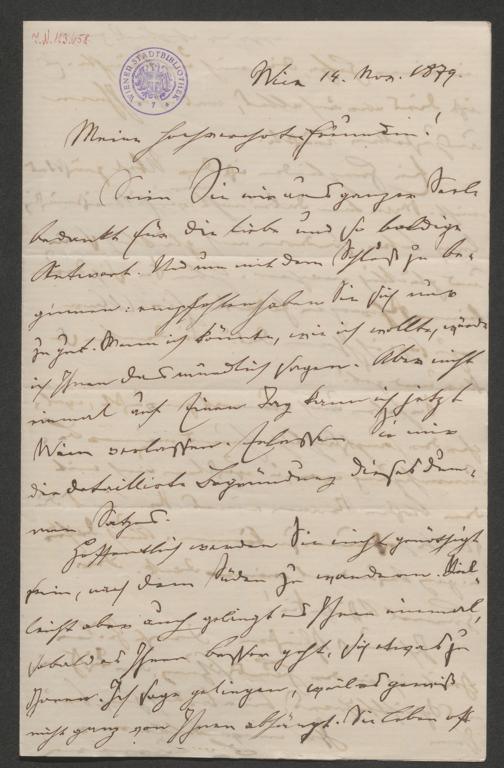 I.N. 123.458
WIENER STADTBIBLIOTHEK
Wien 14. Nov. 1879.
Meine hochverehrte Freundin!
Seien Sie mir aus ganzer Seele
bedankt für die liebe und so baldige
Antwort. Und um mit dem Schluß zu be-
ginnen: empfohlen haben Sie sich nur
zu gut. Wenn ich könnte, wie ich wollte, würde
ich Ihnen das mündlich sagen. Aber nicht
einmal auf Einen Tag kann ich jetzt
Wien verlassen. Erlassen Sie mir
die detaillirte Begründung dieses dum-
men Satzes.
Hoffentlich werden Sie nicht genöthigt
sein, nach dem Süden zu wandern. Viel-
leicht aber auch gelingt es Ihnen einmal,
sobald es Ihnen besser geht, sich etwas zu
schonen. Ich sage gelingen, weil es gewiß
nicht ganz von Ihnen abhängt. Sie leben oft